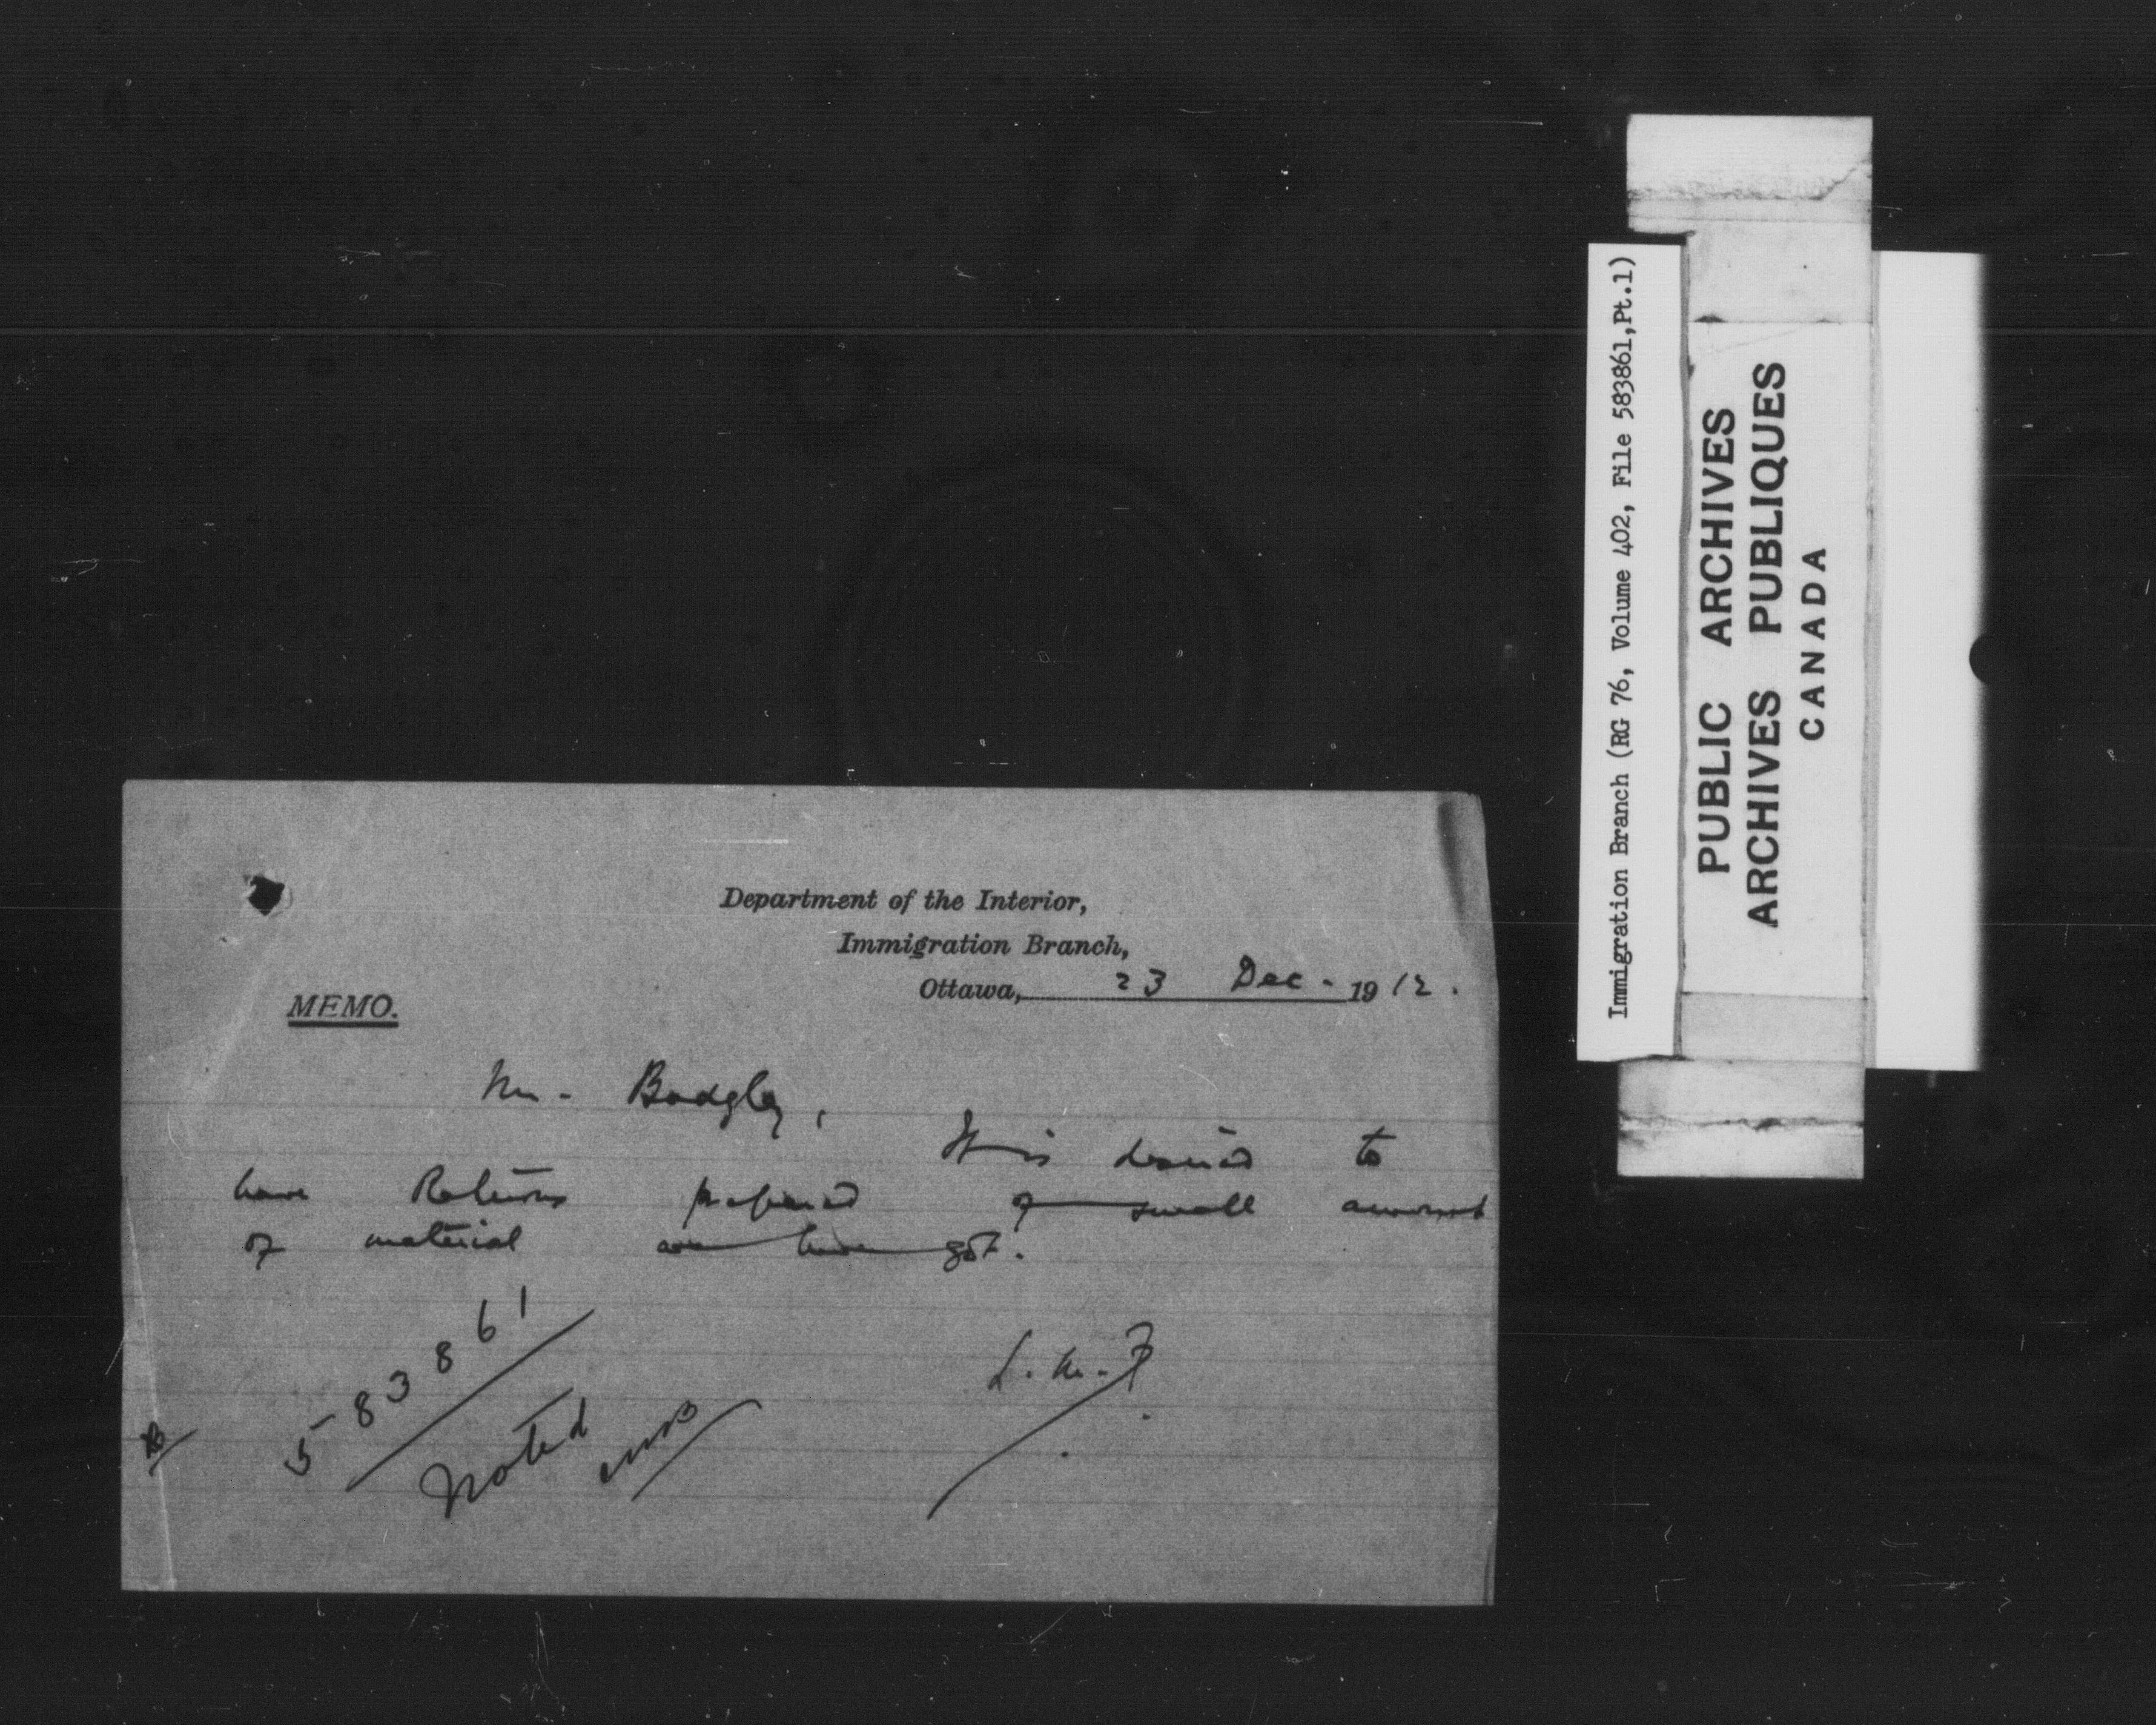 Department of the Interior,
Immigration Branch,
Ottawa, 23 Dec - 1912.
MEMO.
Mr. Badgley,
It is desired to
have Returns prepared of small amount
of material we have got.
583861
L. M. F.
Noted
Immigration Branch (RG 76, Volume 402, File 583861,Pt.1)
PUBLIC ARCHIVES
ARCHIVES PUBLIQUES
CANADA